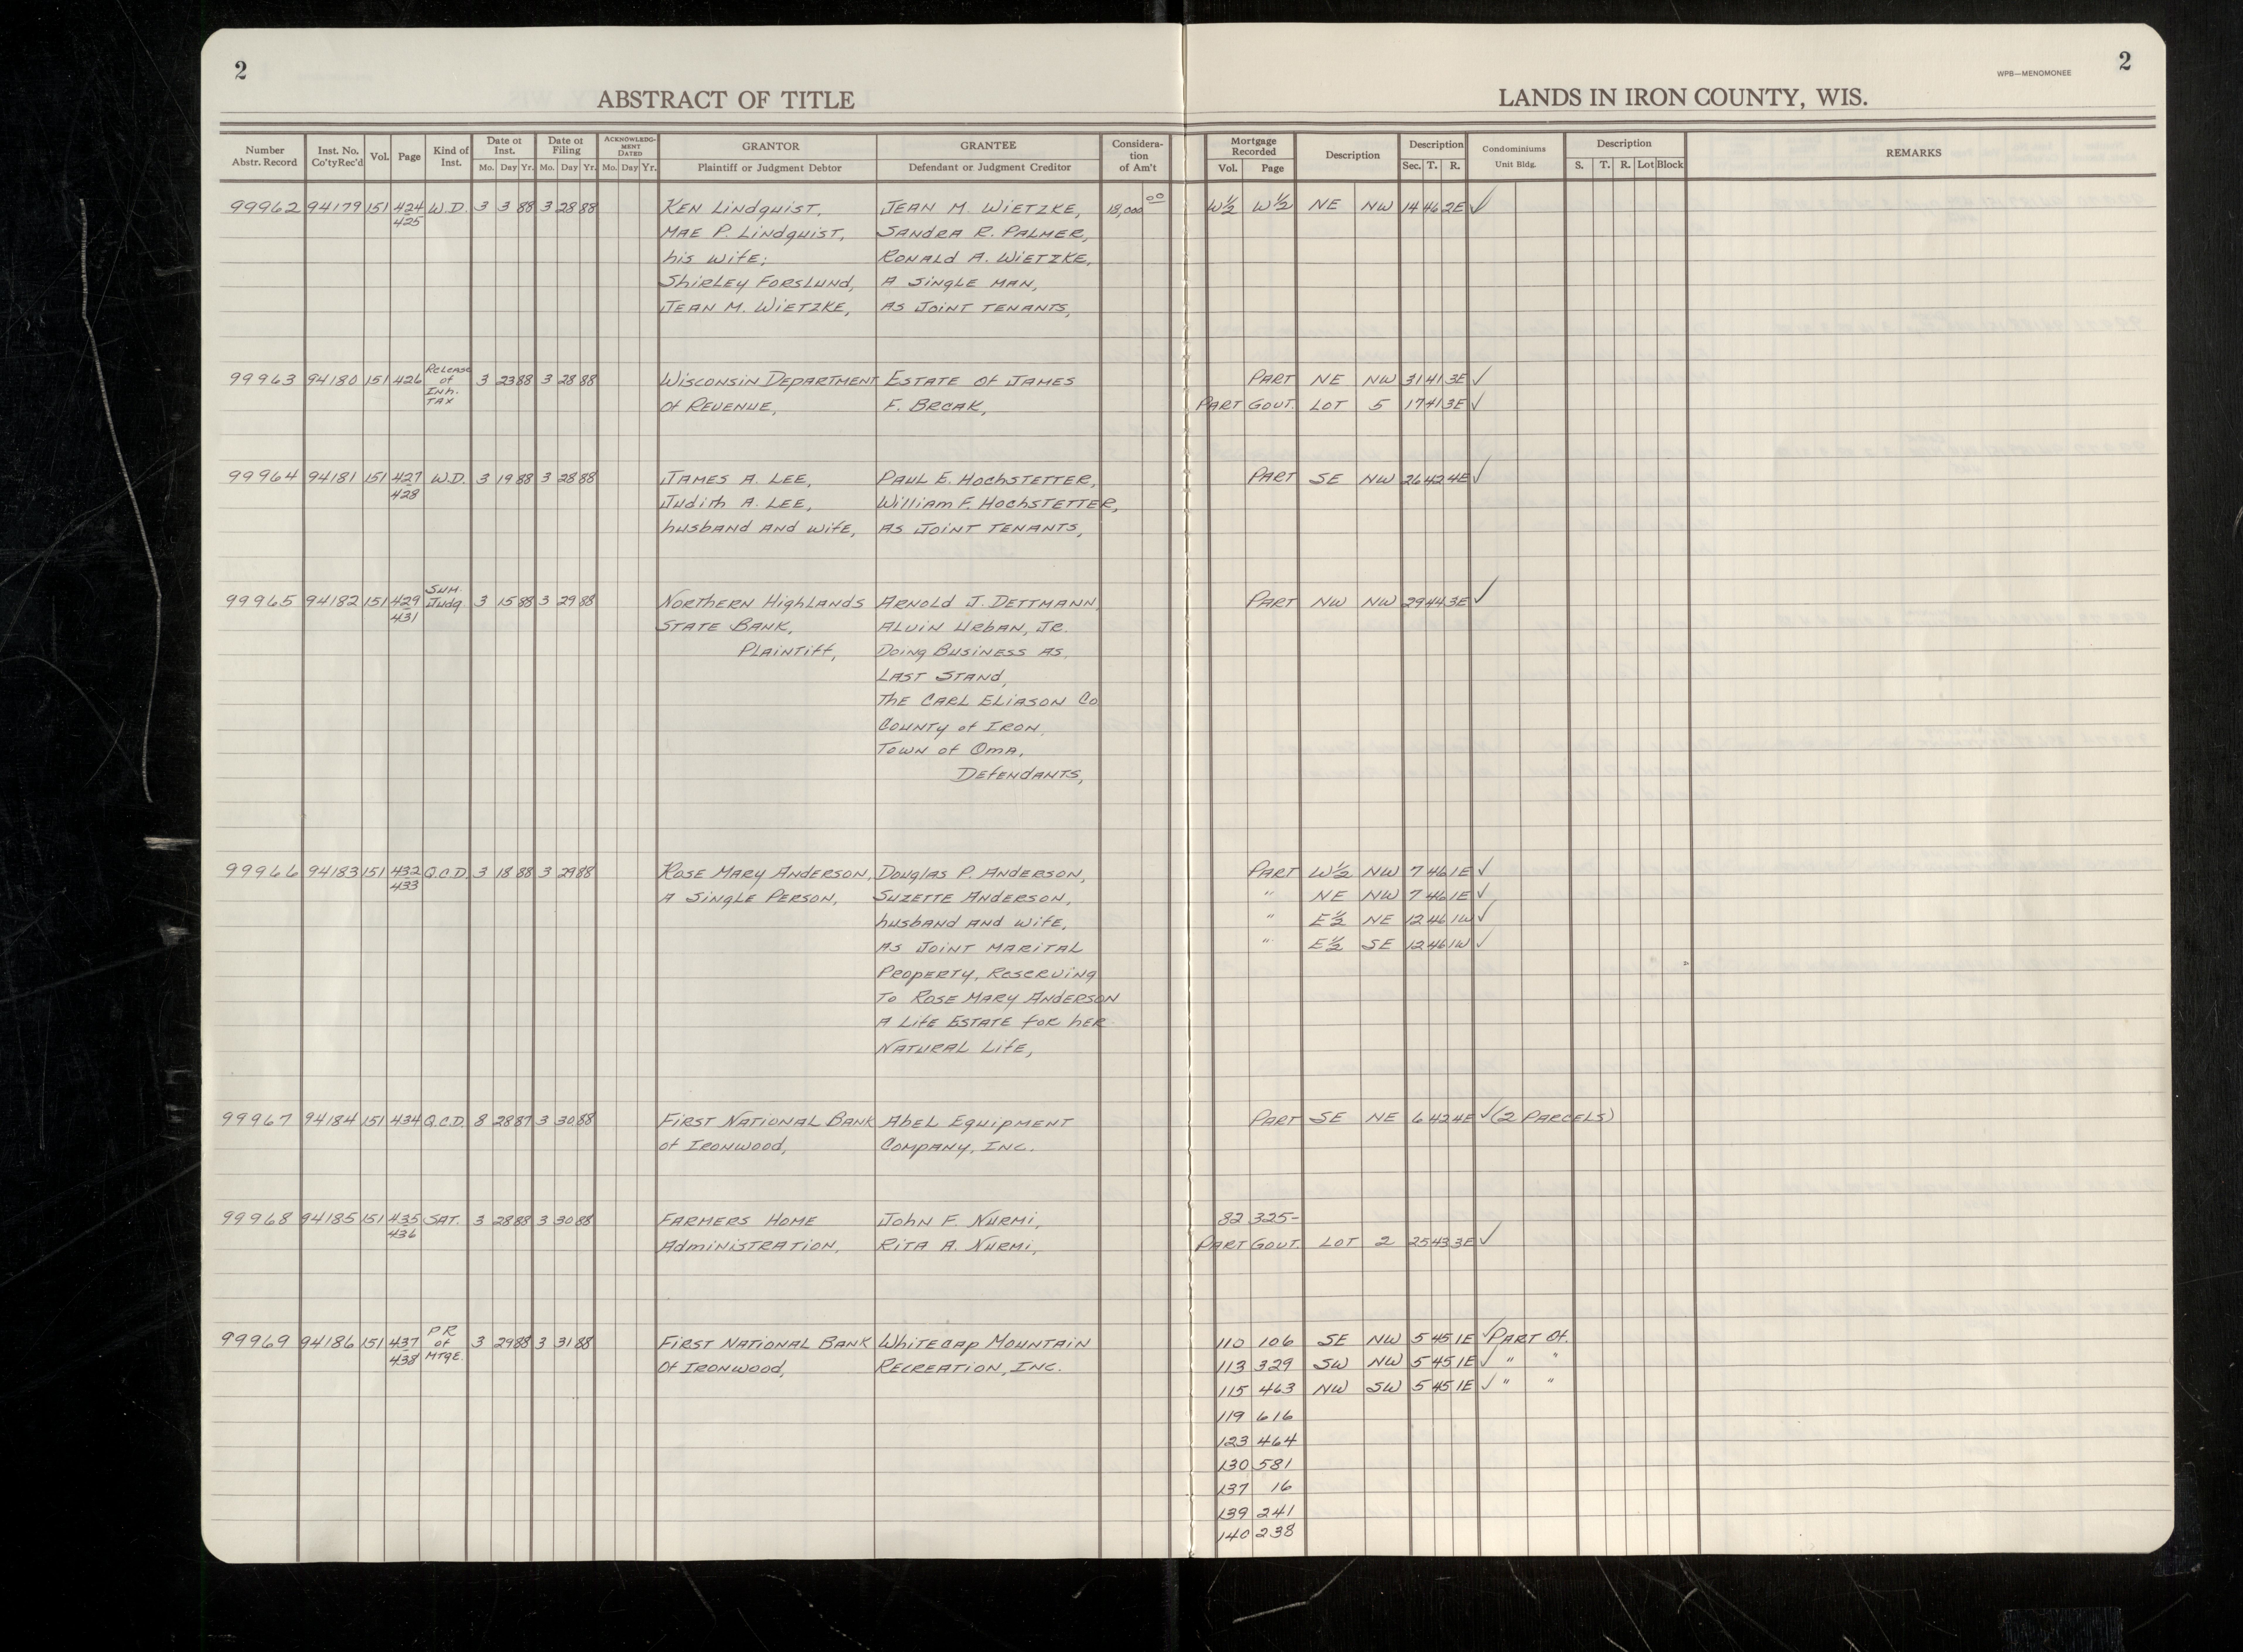 2
2
WPB—MENOMONEE
ABSTRACT OF TITLE LANDS IN IRON COUNTY, WIS.
Number Abstr. Record | Inst. No. Co'ty Rec'd | Vol. | Page | Kind of Inst. | Date of Inst. Mo. Day Yr. | Date of Filing Mo. Day Yr. | ACKNOWLEDGMENT DATED Mo. Day Yr. | GRANTOR Plaintiff or Judgment Debtor | GRANTEE Defendant or Judgment Creditor | Consideration of Am't | Mortgage Recorded Vol. Page | Description | Description Sec. T. R. | Condominiums Unit Bldg. | Description S. T. R. Lot Block | REMARKS
99962 94179 151 424 W.D. 3 3 88 3 28 88 KEN LINDQUIST, JEAN M. WIETZKE, 18,000 00 W½ W½ NE NW 14 46 2E ✓
425 MAE P. LINDQUIST, SANDRA R. PALMER,
his WIFE; RONALD A. WIETZKE,
SHIRLEY FORSLUND, A SINGLE MAN,
JEAN M. WIETZKE, AS JOINT TENANTS,
99963 94180 151 426 RELEASE of INH. TAX 3 23 88 3 28 88 WISCONSIN DEPARTMENT ESTATE OF JAMES PART NE NW 31 41 3E ✓
OF REVENUE, F. BRCAK, PART GOVT. LOT 5 17 41 3E ✓
99964 94181 151 427 W.D. 3 19 88 3 28 88 JAMES A. LEE, PAUL E. HOCHSTETTER, PART SE NW 26 42 4E ✓
428 JUDITH A. LEE, WILLIAM F. HOCHSTETTER,
HUSBAND AND WIFE, AS JOINT TENANTS,
99965 94182 151 429 SUM. JUDG. 3 15 88 3 29 88 NORTHERN HIGHLANDS ARNOLD J. DETTMANN, PART NW NW 29 44 3E ✓
431 STATE BANK, ALVIN URBAN, JR.
PLAINTIFF, DOING BUSINESS AS
LAST STAND,
THE CARL ELIASON CO
COUNTY OF IRON,
TOWN OF OMA,
DEFENDANTS,
99966 94183 151 432 Q.C.D. 3 18 88 3 29 88 ROSE MARY ANDERSON, DOUGLAS P. ANDERSON, PART W½ NW 7 46 1E ✓
433 A SINGLE PERSON, SUZETTE ANDERSON, " NE NW 7 46 1E ✓
HUSBAND AND WIFE, " E½ NE 12 46 1W ✓
AS JOINT MARITAL " E½ SE 12 46 1W ✓
PROPERTY, RESERVING
TO ROSE MARY ANDERSON
A LIFE ESTATE FOR HER
NATURAL LIFE,
99967 94184 151 434 Q.C.D. 8 28 87 3 30 88 FIRST NATIONAL BANK ABEL EQUIPMENT PART SE NE 6 42 4E ✓ (2 PARCELS)
OF IRONWOOD, COMPANY, INC.
99968 94185 151 435 SAT. 3 28 88 3 30 88 FARMERS HOME JOHN F. NURMI, 82 325-
436 ADMINISTRATION, RITA A. NURMI, PART GOVT. LOT 2 25 43 3E ✓
99969 94186 151 437 P R of MTGE. 3 29 88 3 31 88 FIRST NATIONAL BANK WHITECAP MOUNTAIN 110 106 SE NW 5 45 1E ✓ PART OF.
438 OF IRONWOOD, RECREATION, INC. 113 329 SW NW 5 45 1E ✓ " "
115 463 NW SW 5 45 1E ✓ " "
119 616
123 464
130 581
137 16
139 241
140 238